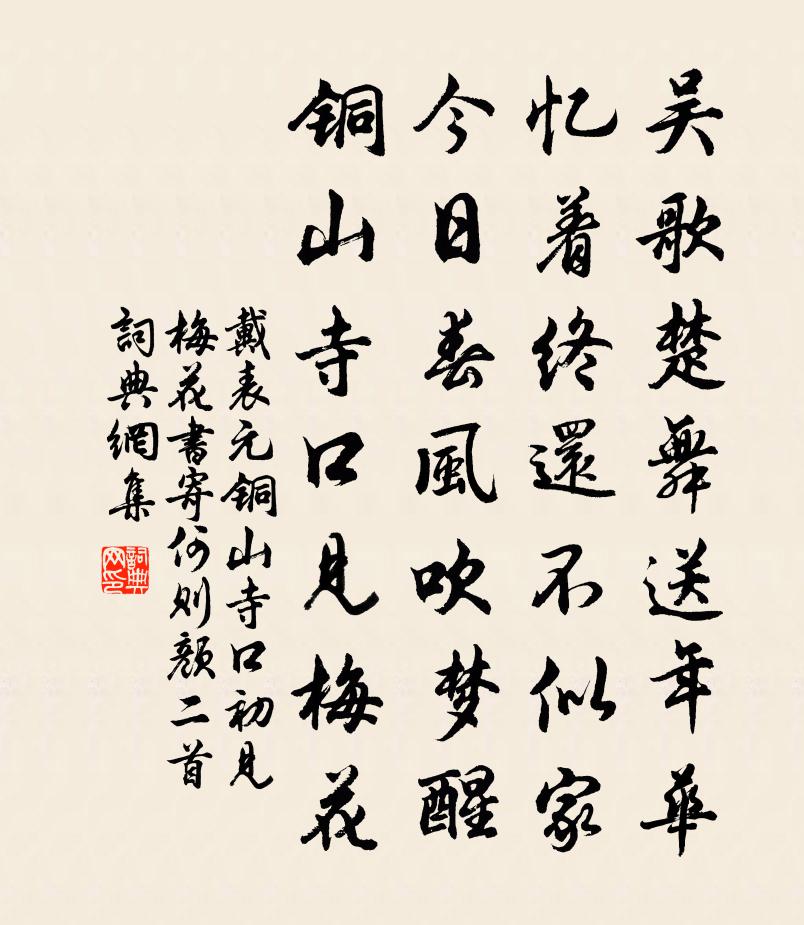 吴歌楚舞送年華
忆着终還不似家
今日春風吹梦醒
铜山寺口見梅花
戴表元铜山寺口初見
梅花書寄何则顏二首
詞典網集
詞典
网印